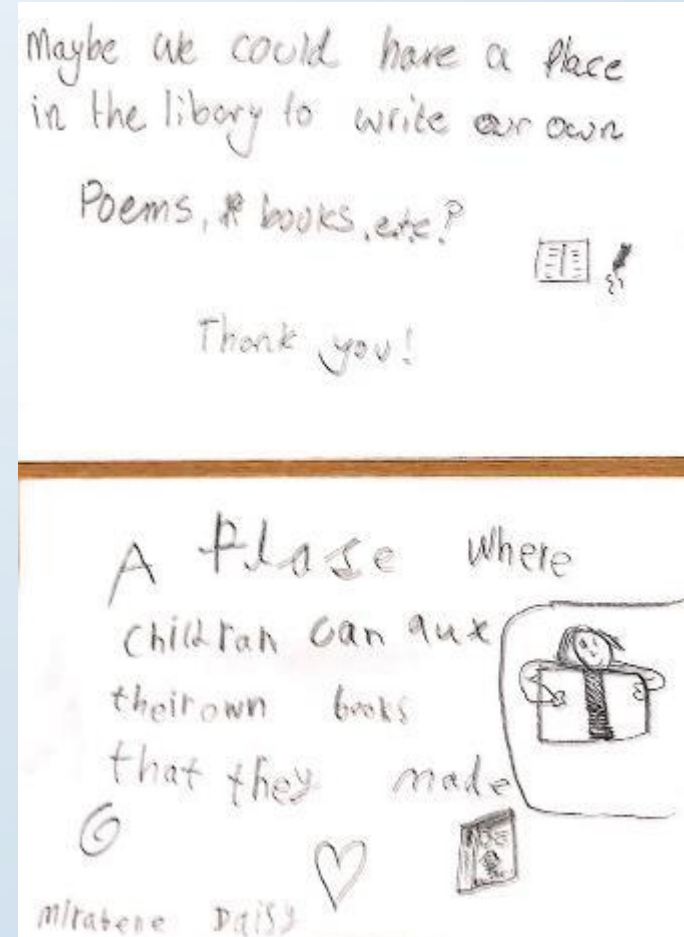 Maybe we could have a Place
in the libory to write our own
Poems, books, etc?
Thank you!
A Plase where
childran can aux
their own books
that they made
Mirabene Daisy